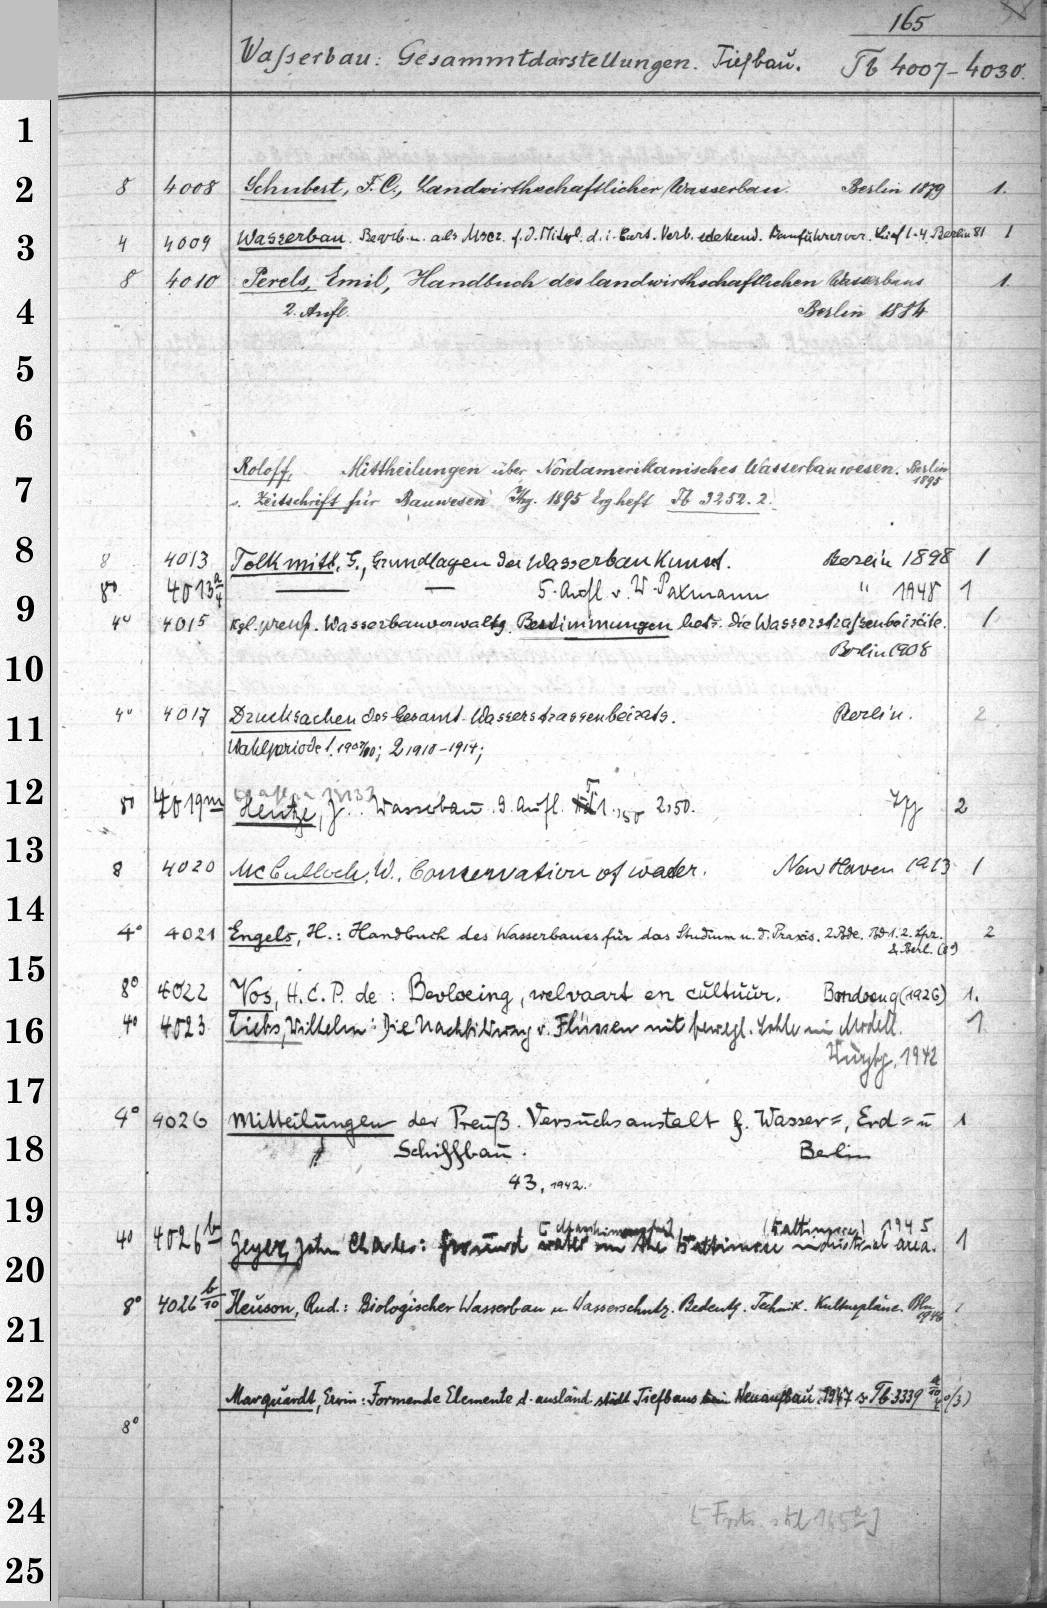 165
Wasserbau: Gesammtdarstellungen. Tiefbau. Tb 4007-4030.
1
2 8 4008 Schubert, F. C., Landwirthschaftlicher Wasserbau. Berlin 1879 1.
3 4 4009 Wasserbau. Bearb. u. als Mscr. f. d. Mitgl. d. i. Cart. Verb. stehend. Bauführerver. Lief 1-4 Berlin 81 1
8 4010 Perels, Emil, Handbuch des landwirthschaftlichen Wasserbaus 1.
4 2. Aufl. Berlin 1884
5
6
Roloff, Mittheilungen über Nordamerikanisches Wasserbauwesen. Berlin 1895
7 s. Zeitschrift für Bauwesen Jhg. 1895 Ergheft Tb 3252.2.
8 8 4013 Tolkmitt, G., Grundlagen der Wasserbaukunst. Berlin 1898 1
8° 4013 a/4 — — 5. Aufl. v. W. Paxmann " 1948 1
9 4° 4015 Kgl. preuß. Wasserbauverwaltg. Bestimmungen betr. die Wasserstraßenbeiräte. 1
10 Berlin 1908
11 4° 4017 Drucksachen des Gesamt-Wasserstrassenbeirats. Berlin. 2
Wahlperiode 1. 1907/10; 2 1910-1914;
12 8° 4019m Hentze, J. Wasserbau. 9. Aufl. T 1.,50 2,50. Lpz 2
13 8 4020 McCulloch, W., Conservation of water. New Haven 1913 1
14 4° 4021 Engels, H.: Handbuch des Wasserbaues für das Studium u. d. Praxis. 2 Bde. Bd 1.2. Lpz. 2
& Berl.
15 8° 4022 Vos, H. C. P. de: Bevloeing, welvaart en cultuur. Bandoeng (1926) 1.
16 4° 4023 Tiebs, Wilhelm: Die Nachbildung v. Flüssen mit bewegl. Sohle im Modell. 1
Würzbg, 1942
17 4° 4026 Mitteilungen der Preuß. Versuchsanstalt f. Wasser=, Erd= u 1
18 Schiffbau. Berlin
43, 1942.
19 (Baltimore) 1945
4° 4026 b Geyer, John Charles: Ground water in the Baltimore industrial area. 1
20
8° 4026 b/10 Heuson, Rud.: Biologischer Wasserbau u. Wasserschutz. Bedeutg. Technik. Kulturpläne. Bln 1946 1
21
22 Marquardt, Erwin: Formende Elemente d. ausländ. städt Tiefbaus beim Neuaufbau. 1947 s. Tb 3339
8°
23
24 [Forts. 165a]
25